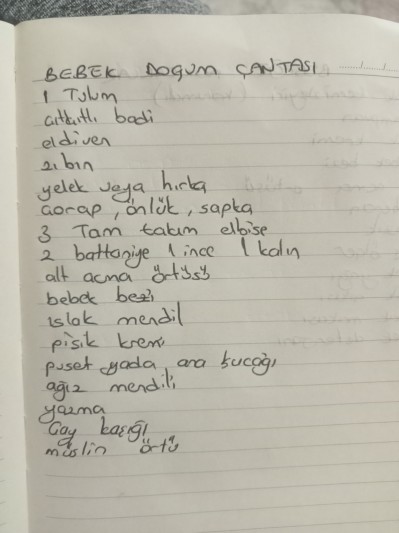 BEBEK DOĞUM ÇANTASI
1 Tulum
çıtkıtlı badi
eldiven
zıbın
yelek veya hırka
çorap, önlük, şapka
3 Tam takım elbise
2 battaniye 1 ince 1 kalın
alt açma örtüsü
bebek bezi
ıslak mendil
pişik kremi
puset yada ana kucağı
ağız mendili
yazma
Çay kaşığı
müslin örtü